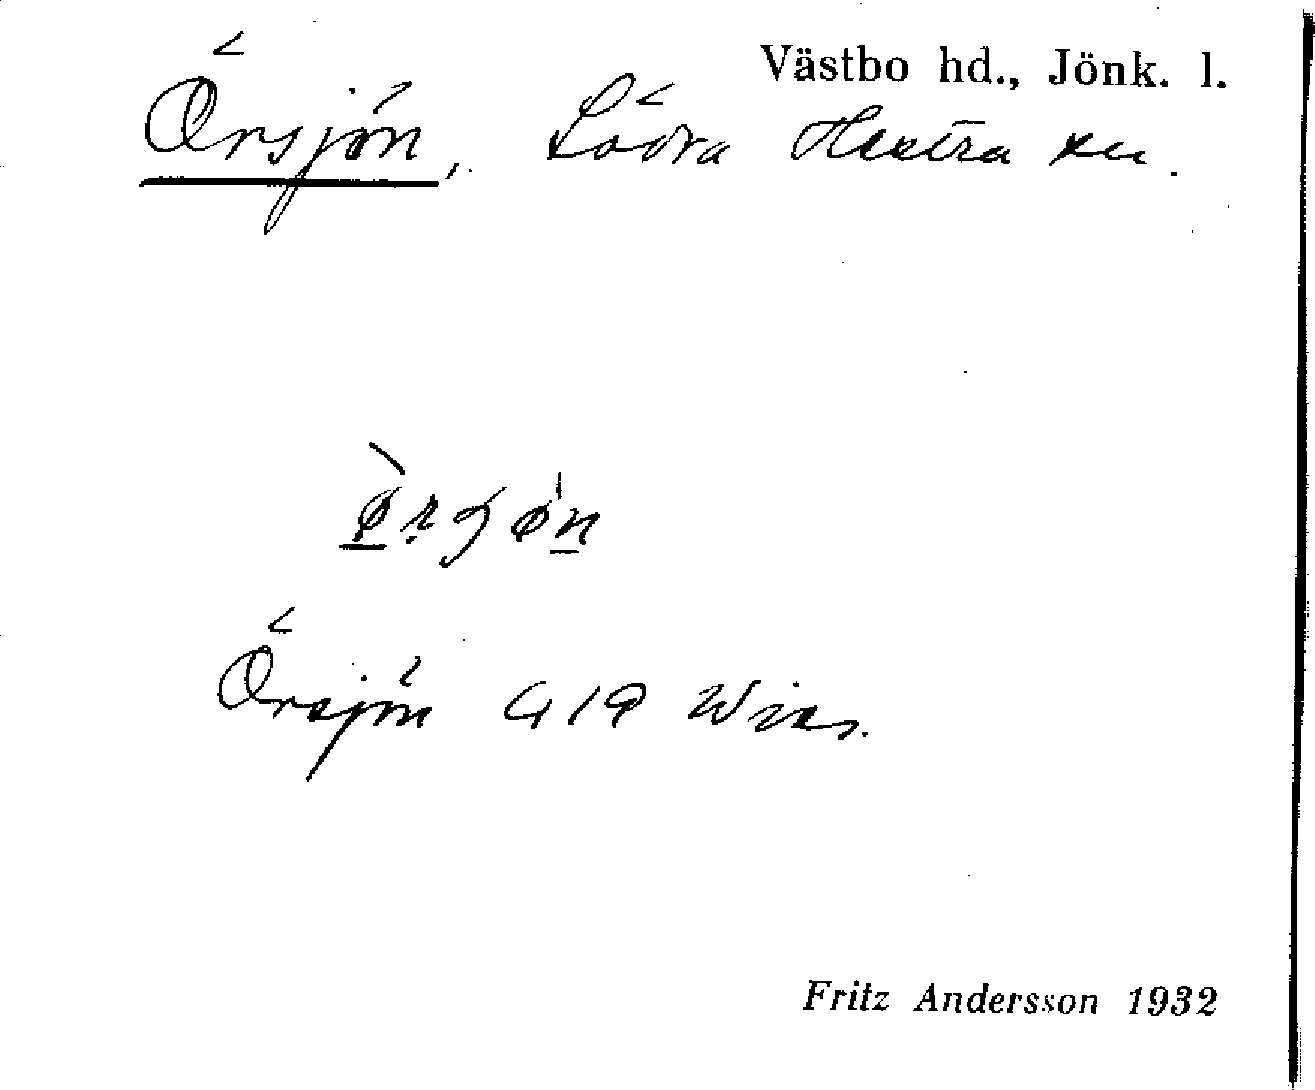 Västbo hd., Jönk. l.
Örsjön, Södra Hestra sn.
Örsjön G 19 Wies.
Fritz Andersson 1932